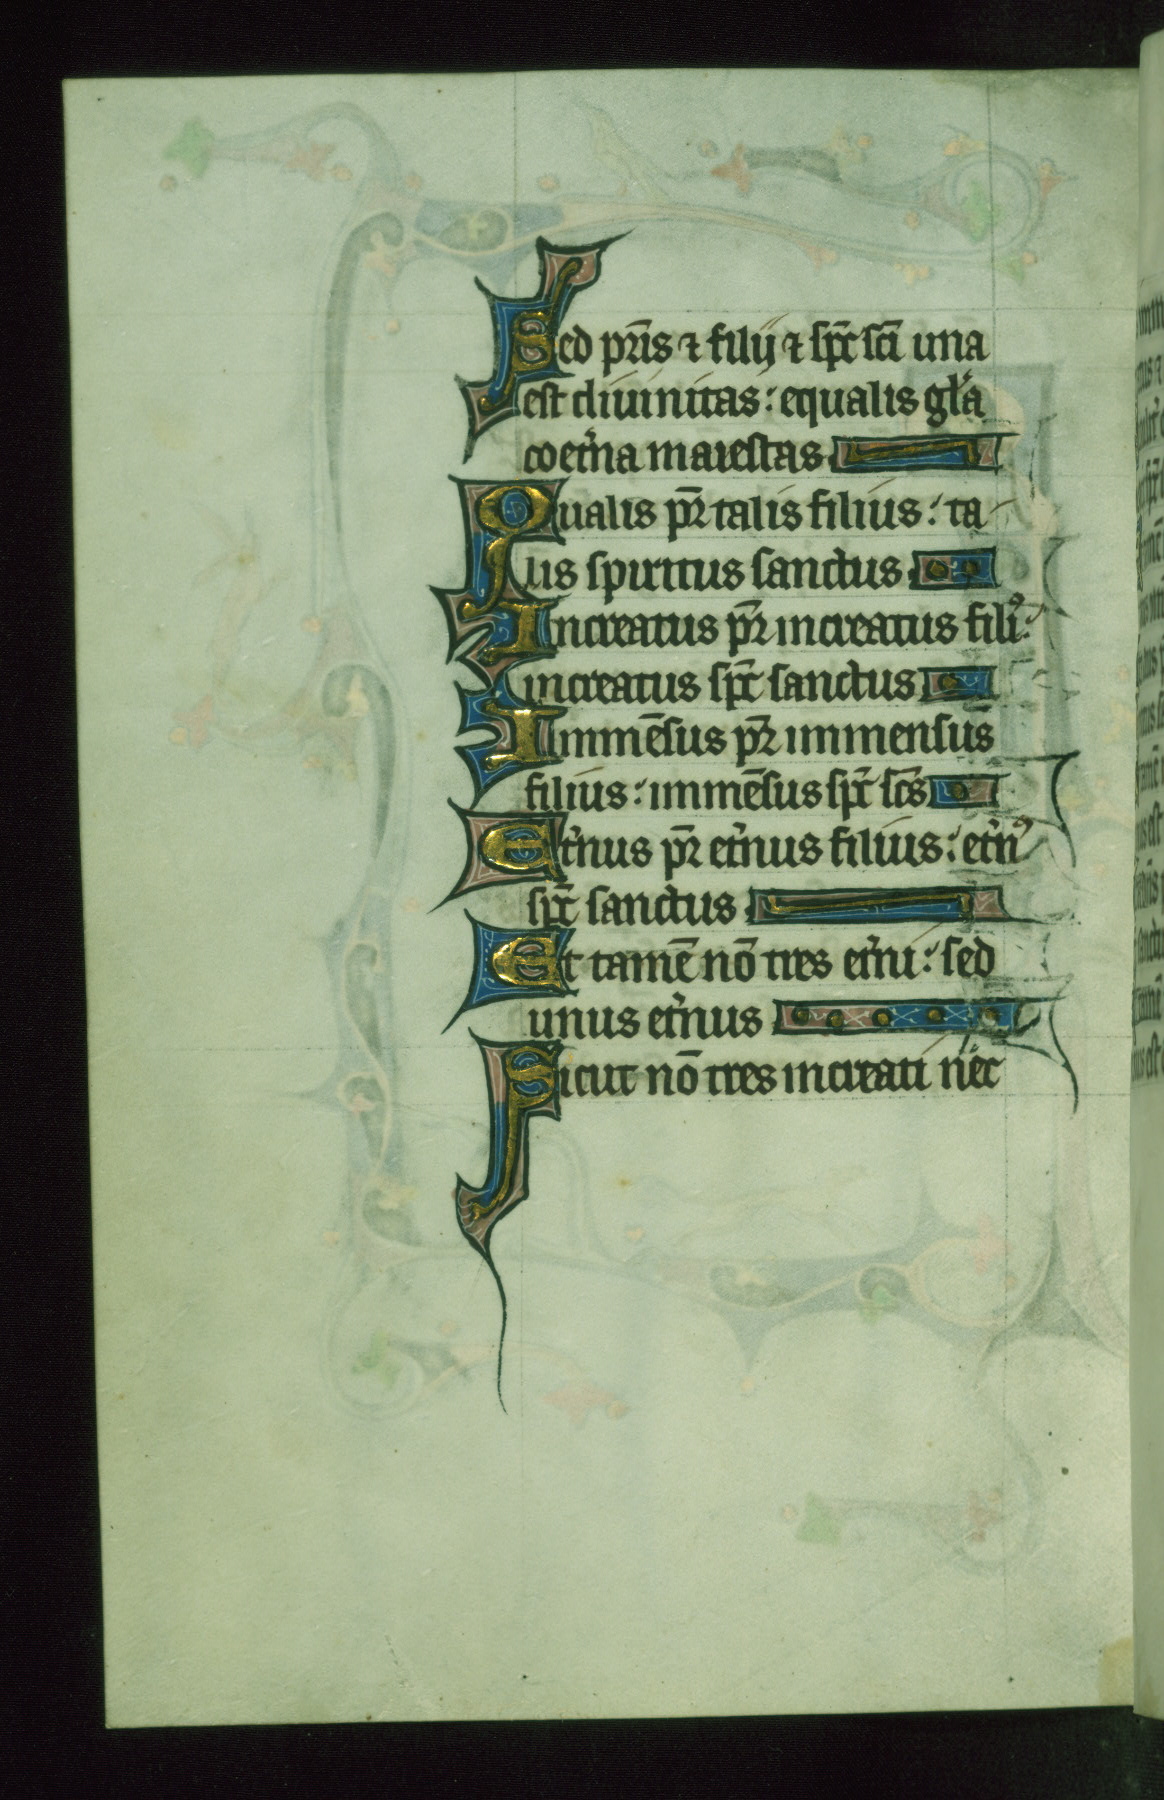 Sed pr̄is ⁊ filij ⁊ sp̄c sc̄i una
est diuinitas: equalis gl̓a
coet̓na maiestas
Qualis pr̄ talis filius: ta
lis spiritus sanctus
Increatus pr̄ increatus filiꝰ:
increatus sp̄c sanctus
Immēsus pr̄ immensus
filius: immēsus sp̄c sc̄s
Et̓nus pr̄ et̓nus filius: et̓nꝰ
sp̄c sanctus
Et tamē nō tres et̓ni: sed
unus et̓nus
Sicut nō tres increati nec